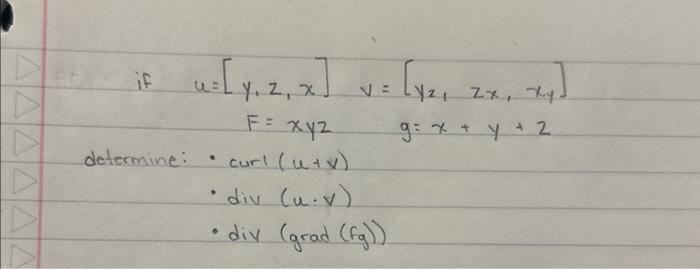 if u=[y, z, x] v = [yz, zx, xy]
F= xyz g= x + y + z
determine: • curl (u+v)
• div (u·v)
• div (grad (fg))